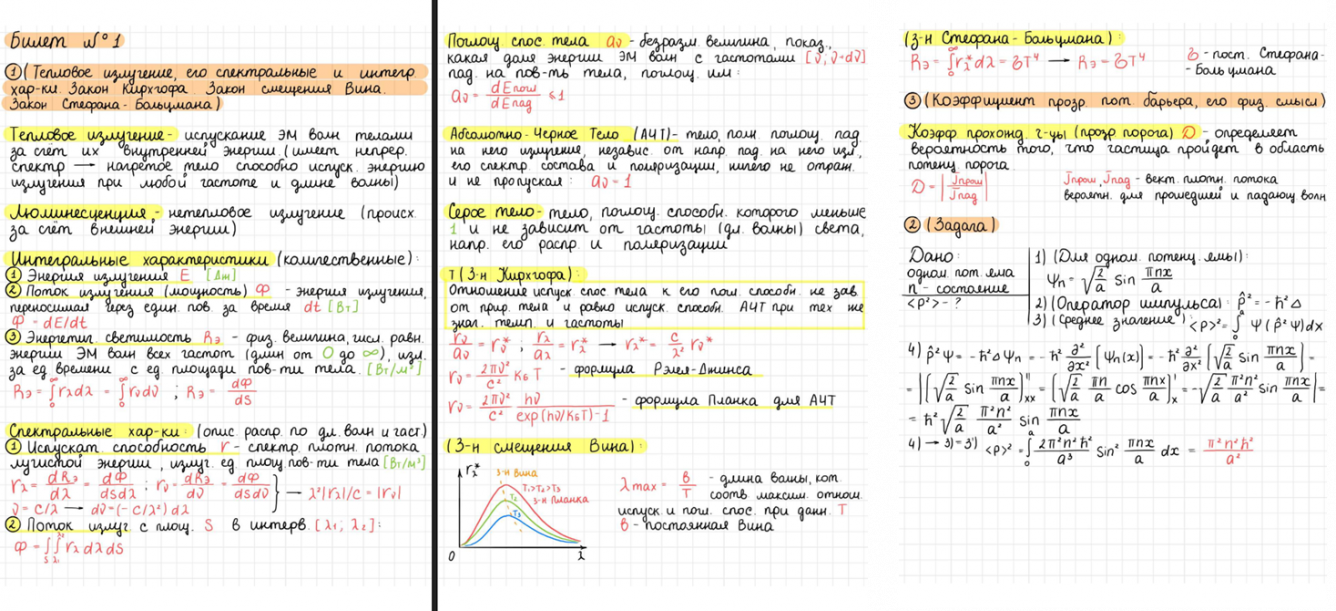 Билет №1
① (Тепловое излучение, его спектральные и интегр.
хар-ки. Закон Кирхгофа. Закон смещения Вина.
Закон Стефана-Больцмана)
Тепловое излучение - испускание ЭМ волн телами
за счёт их внутренней энергии (имеет непрер.
спектр → нагретое тело способно испуск. энергию
излучения при любой частоте и длине волны)
Люминесценция - нетепловое излучение (происх.
за счёт внешней энергии)
Интегральные характеристики (количественные):
① Энергия излучения E [Дж]
② Поток излучения (мощность) Ф - энергия излучения,
переносимая через един. пов. за время dt [Вт]
Ф = dE/dt
③ Энергетич. светимость Rэ - физ. величина, числ. равн.
энергии ЭМ волн всех частот (длин от 0 до ∞), изл.
за ед времени с ед площади пов-ти тела. [Вт/м²]
Rэ = ∫₀^∞ r_λ dλ = ∫₀^∞ r_ν dν ; Rэ = dФ/dS
Спектральные хар-ки: (опис распр. по дл. волн и част.)
① Испускат. способность r - спектр. плотн. потока
лучистой энергии, излуч. ед площ. пов-ти тела [Вт/м³]
r_λ = dRэ/dλ = dФ/dSdλ ; r_ν = dRэ/dν = dФ/dSdν } → λ²|r_λ|/c = |r_ν|
ν = c/λ → dν = (-c/λ²) dλ
② Поток излуч. с площ. S в интерв. [λ₁; λ₂]:
Ф = ∫_S ∫_λ₁^λ₂ r_λ dλ dS
Поглощ спос. тела a_ν - безразм. величина, показ.,
какая доля энергии ЭМ волн с частотами [ν, ν+dν]
пад. на пов-ть тела, поглощ. им:
a_ν = dEпогл/dEпад ≤ 1
Абсолютно-Черное Тело (АЧТ) - тело, полн поглощ. пад
на него излучение, независ. от напр. пад. на него изл.,
его спектр состава и поляризации, ничего не отраж.
и не пропуская: a_ν = 1
Серое тело - тело, поглощ. способн. которого меньше
1 и не зависит от частоты (дл. волны) света,
напр. его распр. и поляризации
т (З-н Кирхгофа):
Отношение испуск спос тела к его погл. способн. не зав.
от прир. тела и равно испуск. способн. АЧТ при тех же
знач. темп. и частоты
r_ν/a_ν = r_ν* ; r_λ/a_λ = r_λ* → r_λ* = c/λ² r_ν*
r_ν = 2πν²/c² K_Б T - формула Рэлея-Джинса
r_ν = 2πν²/c² hν/exp(hν/K_Б T)-1 - формула Планка для АЧТ
(З-н смещения Вина):
r_λ*
з-н Вина
T₁>T₂>T₃
з-н Планка
T₂
T₃
0
λ
λmax = в/T - длина волны, кот.
соотв. максим. отнош.
испуск и погл. спос. при данн. T
в - постоянная Вина
(З-н Стефана-Больцмана):
Rэ = ∫₀^∞ r_λ* dλ = σT⁴ → Rэ = σT⁴
σ - пост. Стефана-
-Больцмана
③ (Коэффициент прозр. пот. барьера, его физ. смысл)
Коэфф прохожд. ч-цы (прозр порога) D - определяет
вероятность того, что частица пройдет в область
потенц. порога
D = |Jпрош/Jпад|
Jпрош, Jпад - вект. плотн. потока
вероятн. для прошедшей и падающ. волн
② (Задача)
Дано:
одном. пот. яма
n - состояние
<p²> - ?
1) (Для одном. потенц. ямы):
Ψn = √(2/a) sin πnx/a
2) (Оператор импульса): p̂² = -ħ²Δ
3) (Среднее значение): <p>² = ∫₀^a Ψ(p̂²Ψ)dx
4) p̂²Ψ = -ħ²ΔΨn = -ħ² ∂²/∂x² [Ψn(x)] = -ħ² ∂²/∂x² [√(2/a) sin πnx/a] =
= |[√(2/a) sin πnx/a]''_xx = [√(2/a) πn/a cos πnx/a]'_x = -√(2/a) π²n²/a² sin πnx/a| =
= ħ² √(2/a) π²n²/a² sin πnx/a
4) → 3) = 3') <p>² = ∫₀^a 2π²n²ħ²/a³ sin² πnx/a dx = π²n²ħ²/a²